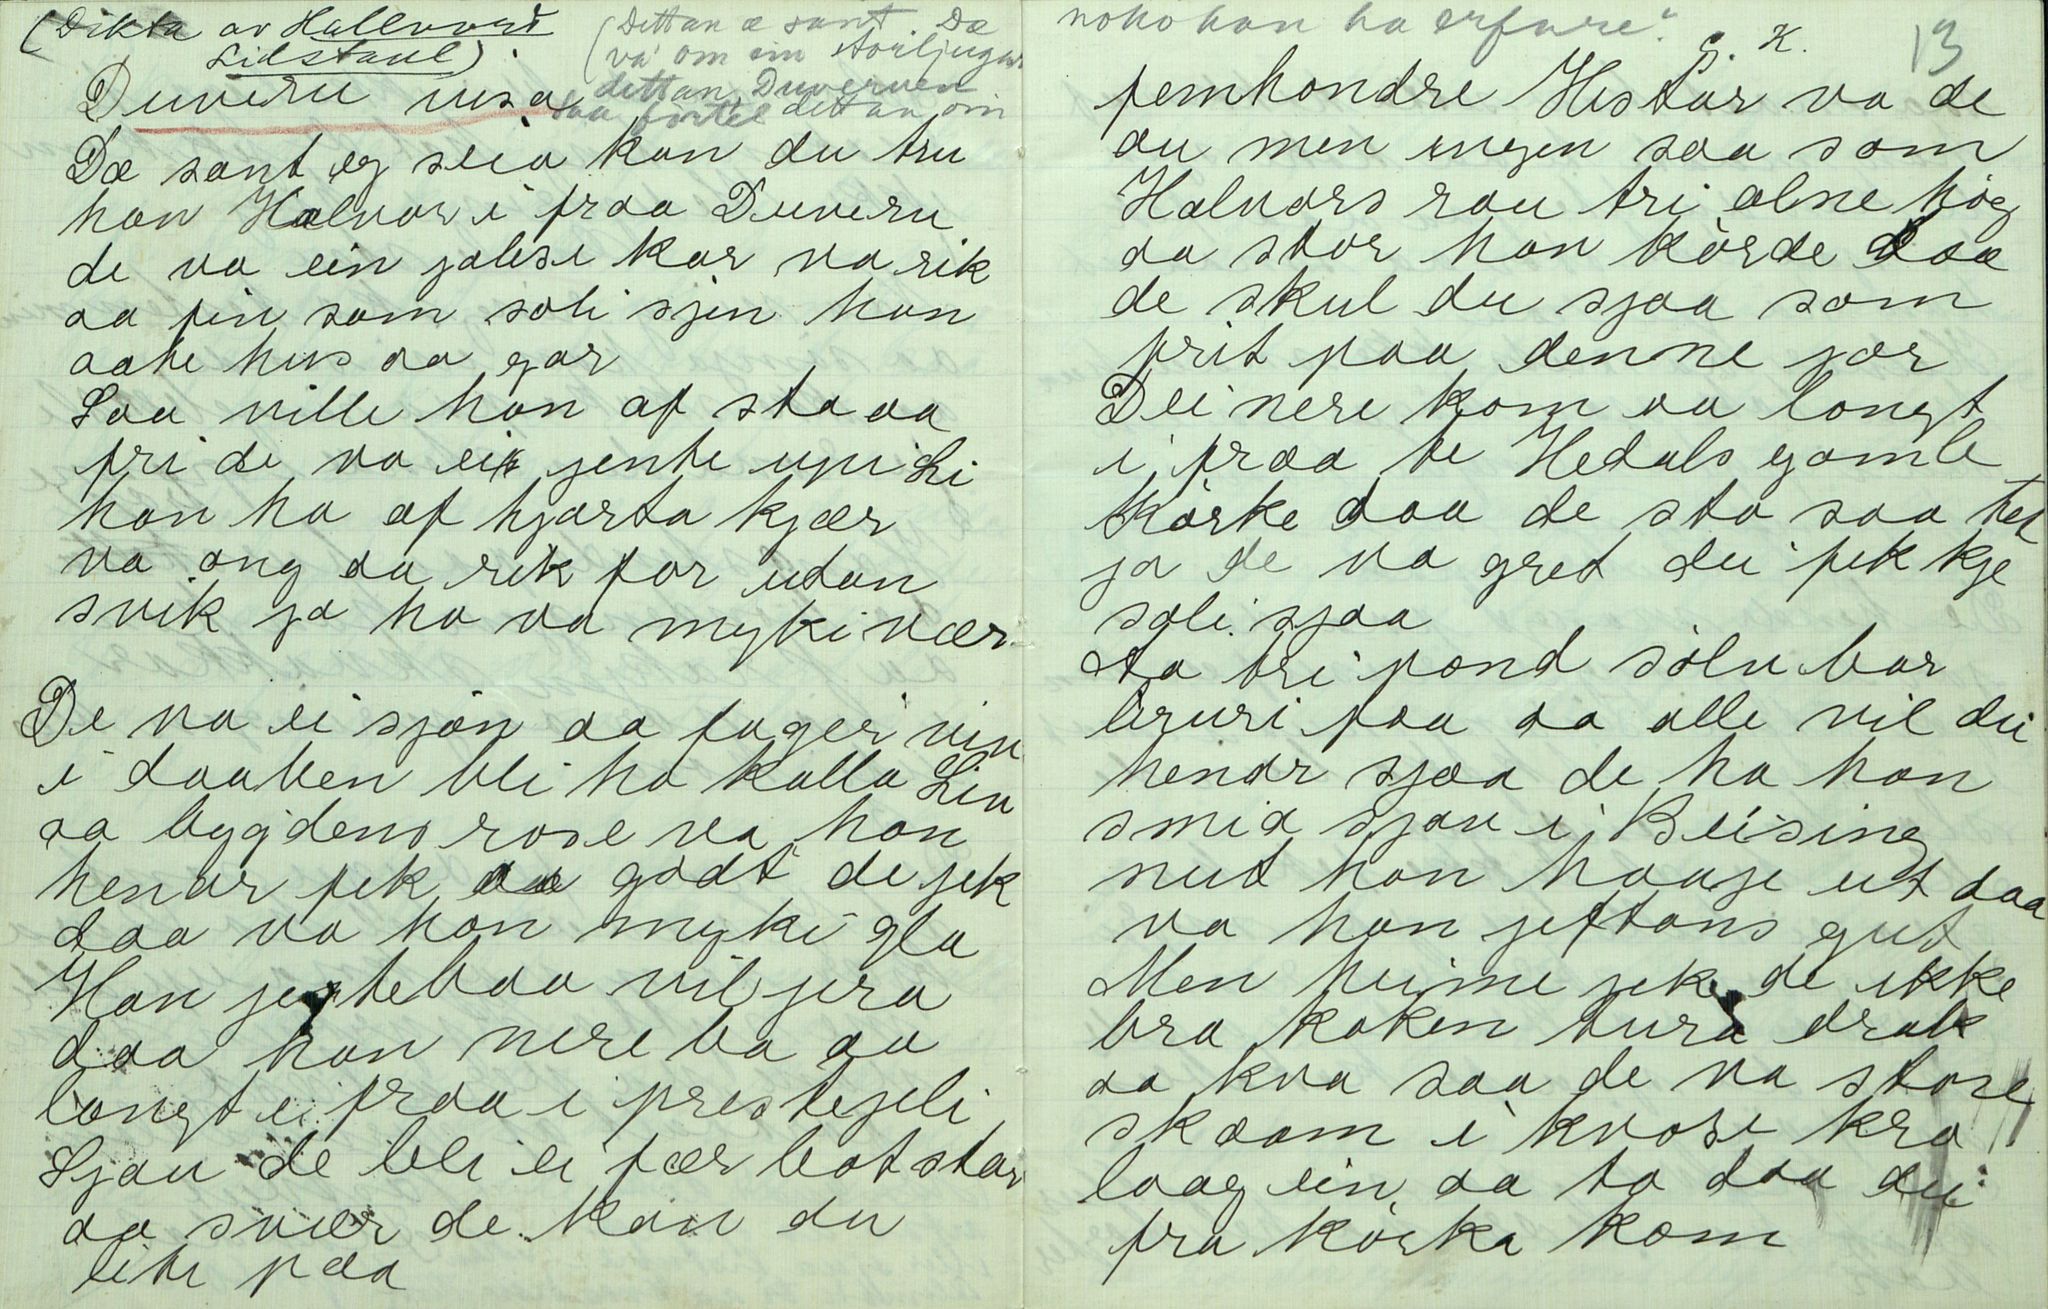 (Dikta av Hallvord
Lidstaul)
(Dettan æ sant. Dæ
va' om ein storljugar
dettan Duverven
saa fortel dettan om
noko han ha erfare."
G. K.
13
Duveru visa
Dæ sant eg seia kan du tru
han Halvor i fraa Duveru
de va ein jalise kar va rik
aa fin som soli sjin han
aatte hus aa gar
Saa ville han af sta aa
fri de va ei jente upi Li
han ha af hjarta kjær
va ong aa rik for utan
svik ja ho va myki vær
De va ei sjøn aa fager vin
i daaben bli ho kalla Liv
aa bygdens rose va han
henar fek aa godt de jek
daa va han myki gla
Han jentebaa vil jera
daa han nere ba aa
langt i fraa i prestejeli
Sjau de bli ei fær bot star
aa svær de kan du
lite paa
femhondre Hestar va de
du men ingen saa som
Halvors rau tri alne høg
aa stor han kørde daa
de skul du sjaa som
frit paa denne jor
Dei nere kom aa langt
i fraa te Hedals gamle
kørke daa de sto saa tet
ja de va gret dei fek kje
soli sjaa
Ta tri pond sølv bar
bruri paa aa alle vil dei
henar sjaa de ha han
smia sjau i Beising
nut han haaje ut daa
va han jiftans gut
Men heime jek de ikke
bra koken tura drak
aa kva saa de va store
skaam i kvose kra
laag ein aa to daa dei
fra kørka kom